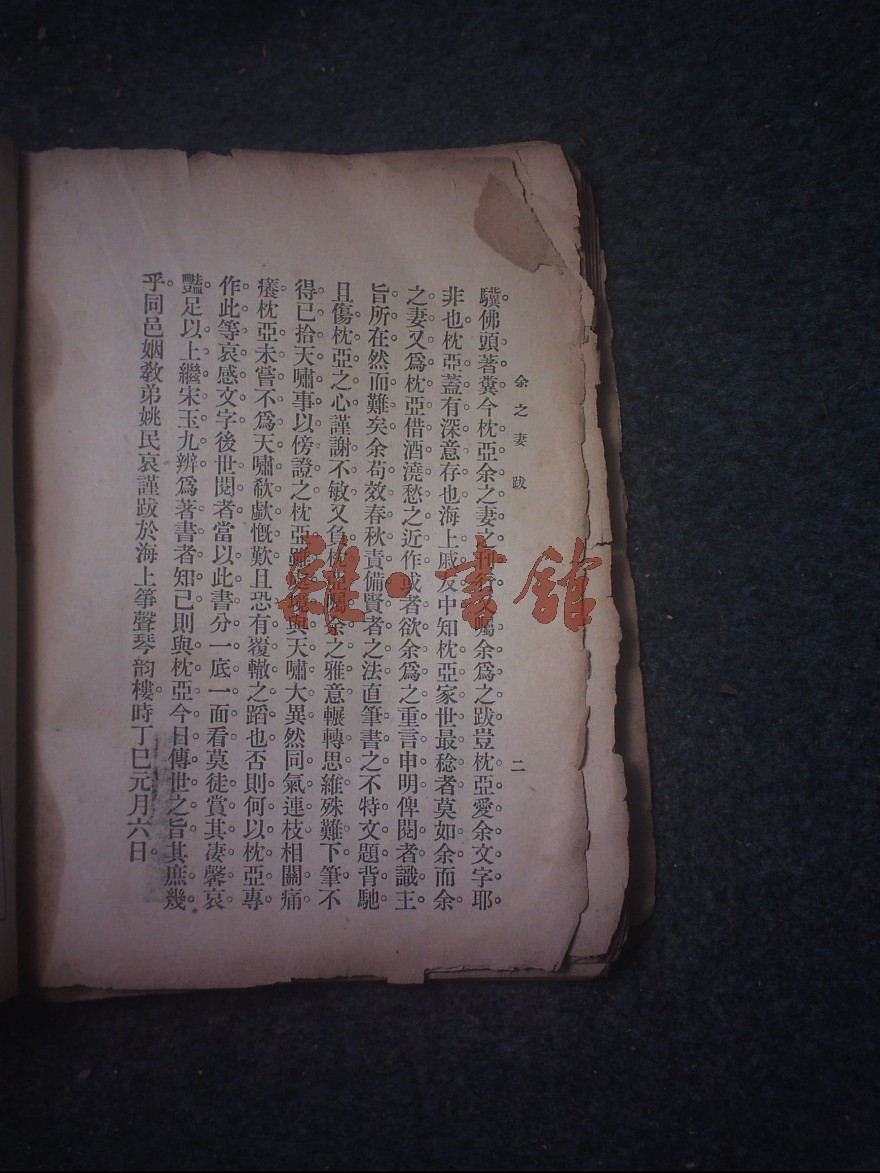 余之妻 跋
二
驥佛頭著糞今枕亞余之妻之刊行又囑余爲之跋豈枕亞愛余文字耶
非也枕亞蓋有深意存也海上戚友中知枕亞家世最稔者莫如余而余
之妻又爲枕亞借酒澆愁之近作或者欲余爲之重言申明俾閱者識主
旨所在然而難矣余苟效春秋責備賢者之法直筆書之不特文題背馳
且傷枕亞之心謹謝不敏又負枕亞囑余之雅意輾轉思維殊難下筆不
得已拾天嘯事以傍證之枕亞雖處境與天嘯大異然同氣連枝相關痛
癢枕亞未嘗不爲天嘯欷歔慨歎且恐有覆轍之蹈也否則何以枕亞專
作此等哀感文字後世閱者當以此書分一底一面看莫徒賞其凄馨哀
豔足以上繼宋玉九辨爲著書者知己則與枕亞今日傳世之旨其庶幾
乎同邑姻教弟姚民哀謹跋於海上箏聲琴韵樓時丁巳元月六日
雜·書館